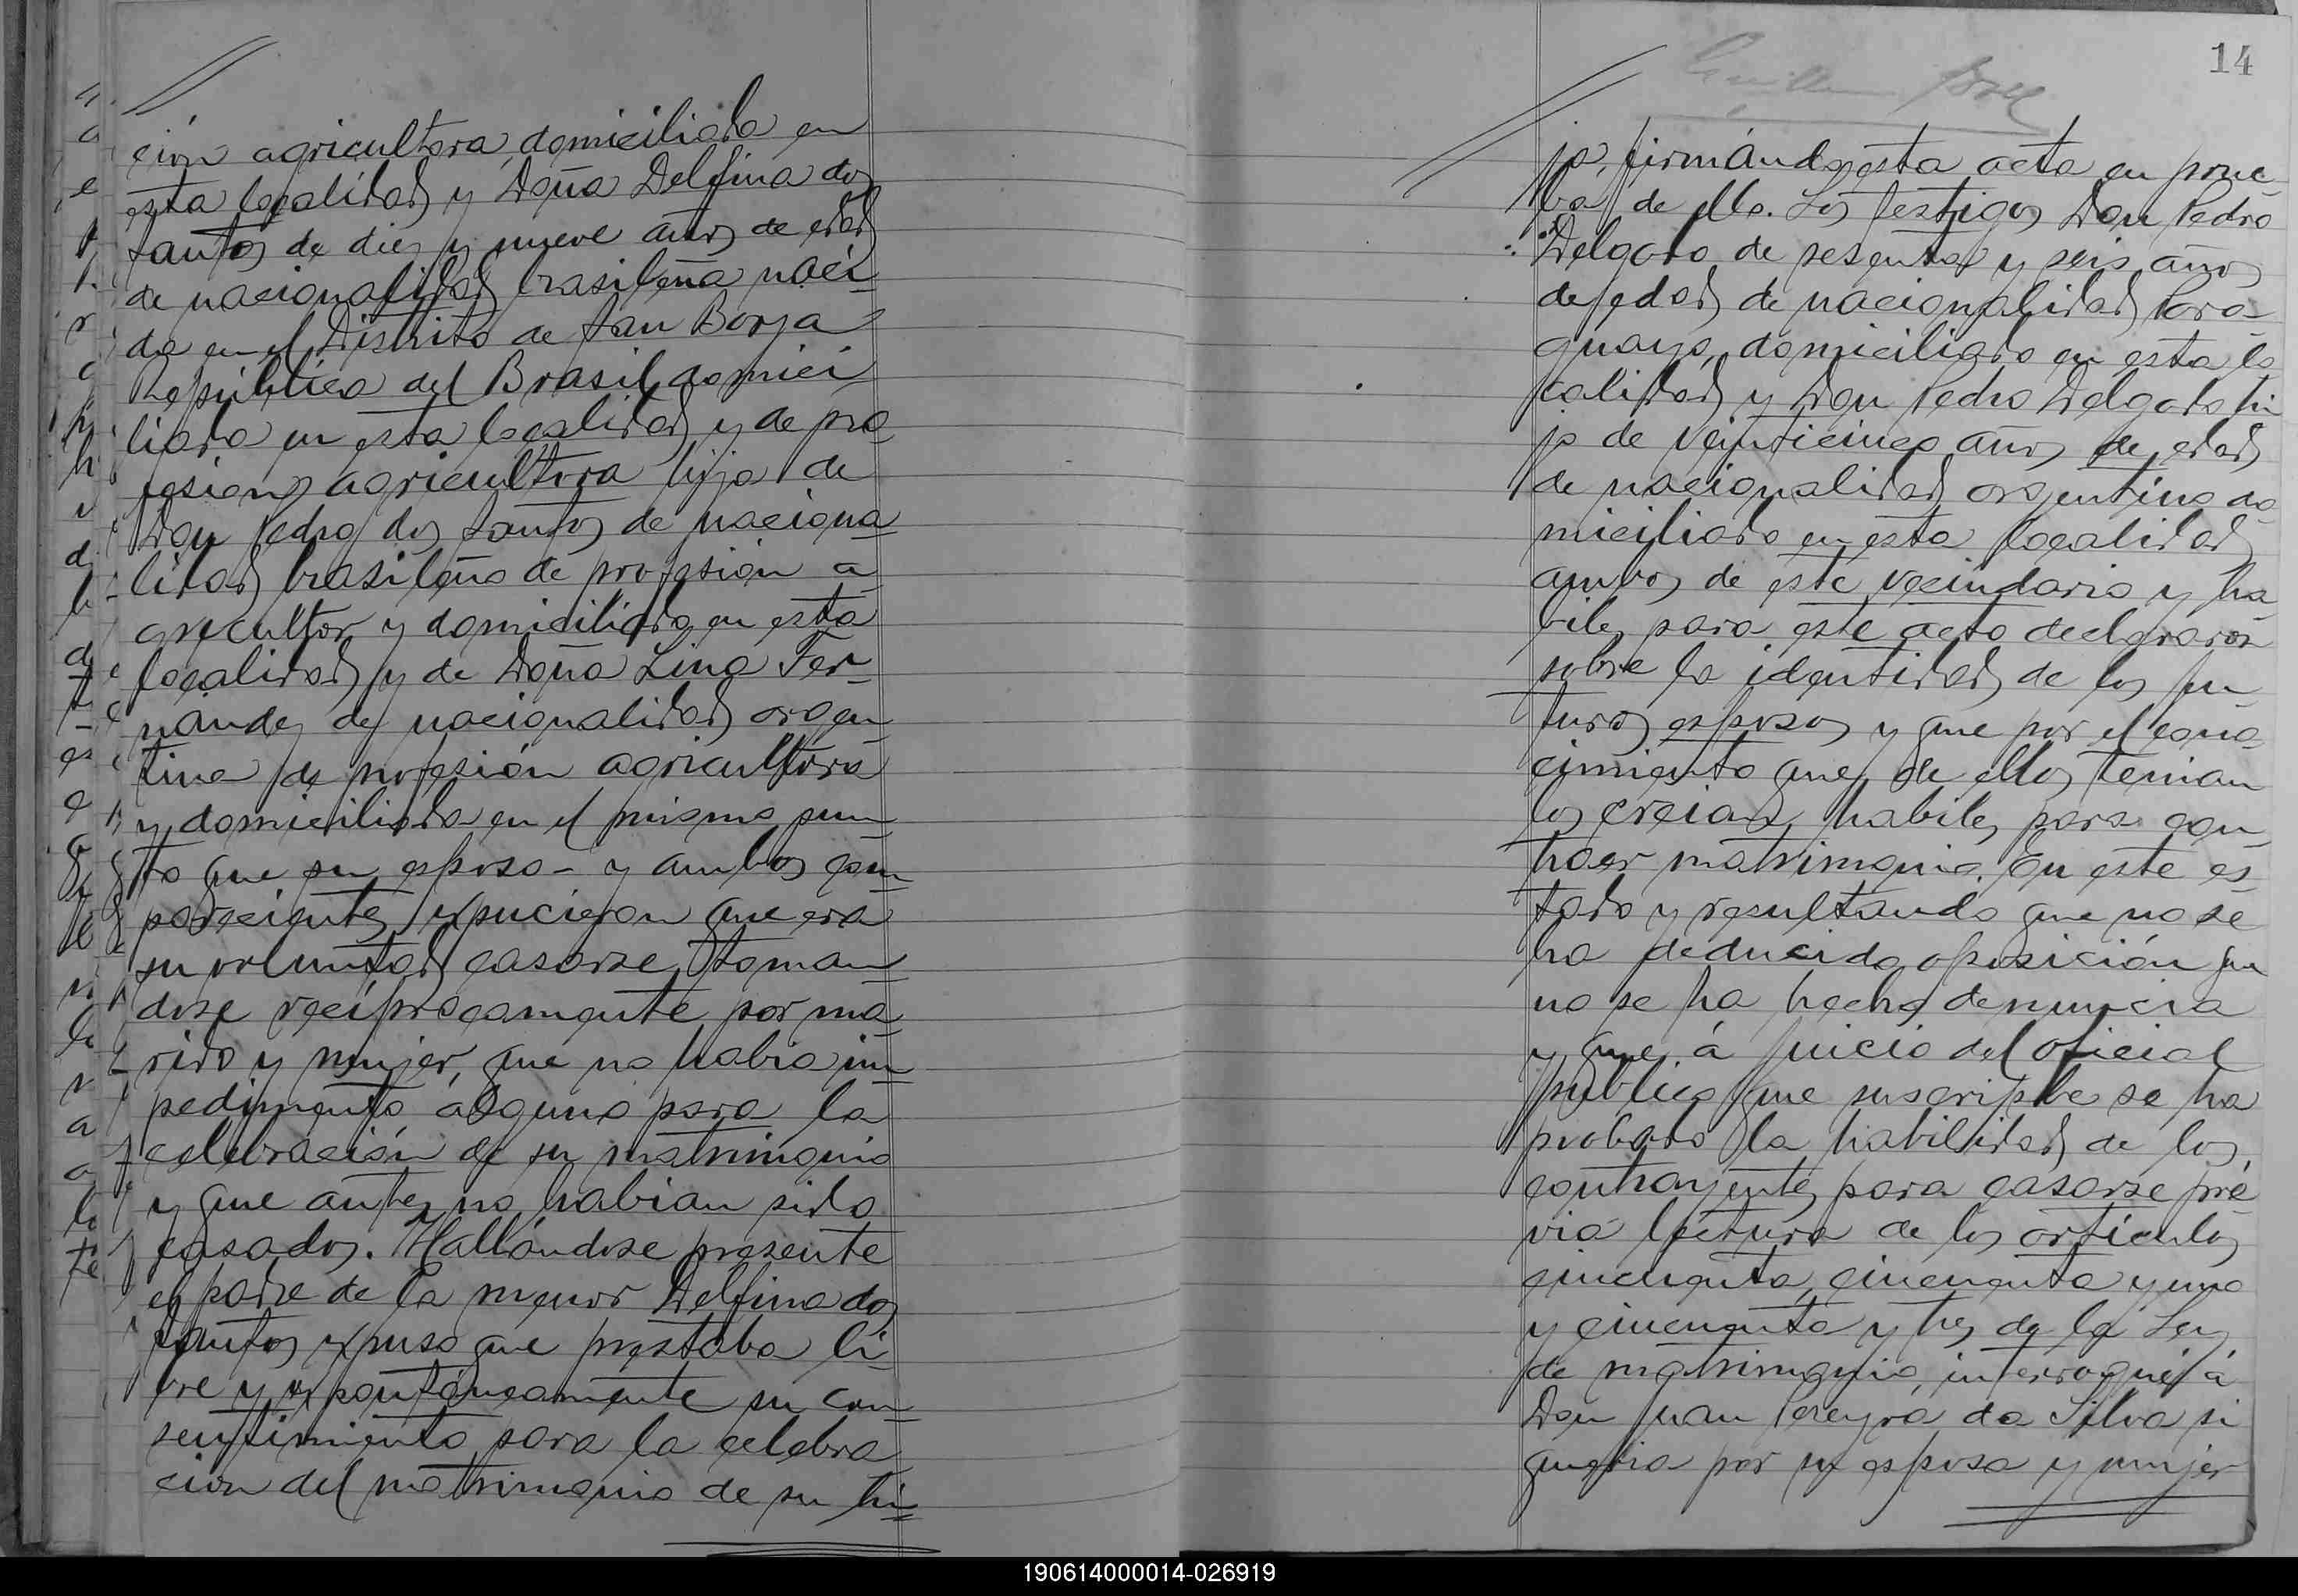 ción agricultora domiciliada en
esta localidad y Doña Delfina dos
Santos de diez y nueve años de edad
de nacionalidad brasileña naci-
da en el Distrito de San Borja
República del Brasil domici
liada en esta localidad y de pro
fesión agricultora hija de
Don Pedro dos Santos de naciona
lidad brasileño de profesión a
gricultor y domiciliado en esta
localidad y de Doña Lina Fer-
nandez de nacionalidad argen
tina de profesión agricultora
y domiciliada en el mismo pun
to que su esposo - y ambos com
parecientes expucieron que era
su voluntad casarse, toman
dose recíprocamente por ma
rido y mujer, que no habia im
pedimento alguno para la
celebración de su matrimonio
y que antes no habian sido
casados. Hallándose presente
el padre de la menor Delfina dos
Santos expuso que prestaba li
bre y espontáneamente su con
sentimiento para la celebra
cion del matrimonio de su hi=
14
ja, firmándo esta acta en prue
ba de ello. Los testigos Don Pedro
Delgado de sesenta y seis años
de edad de nacionalidad Para-
guayo, domiciliado en esta lo
calidad y Don Pedro Delgado hi
jo de veinticinco años de edad
de nacionalidad argentino do
miciliado en esta localidad
ambos de este vecindario y ha
biles para este acto declararon
sobre la identidad de los fu
turos esposos y que por el cono
cimiento que de ellos tenian
los creian habiles para con
traer matrimonio. En este es
tado y resultando que no se
ha deducido oposición que
no se ha hecho denuncia
y que á juicio del oficial
público que suscripbe se ha
probado la habilidad de los
contrayentes para casarse pré
via lectura de los articulos
cincuenta, cincuenta y uno
y cincuenta y tres de la Ley
de matrimonio, interrogué á
Don Juan Pereyra da Silva si
queria por su esposa y mujer
190614000014-026919